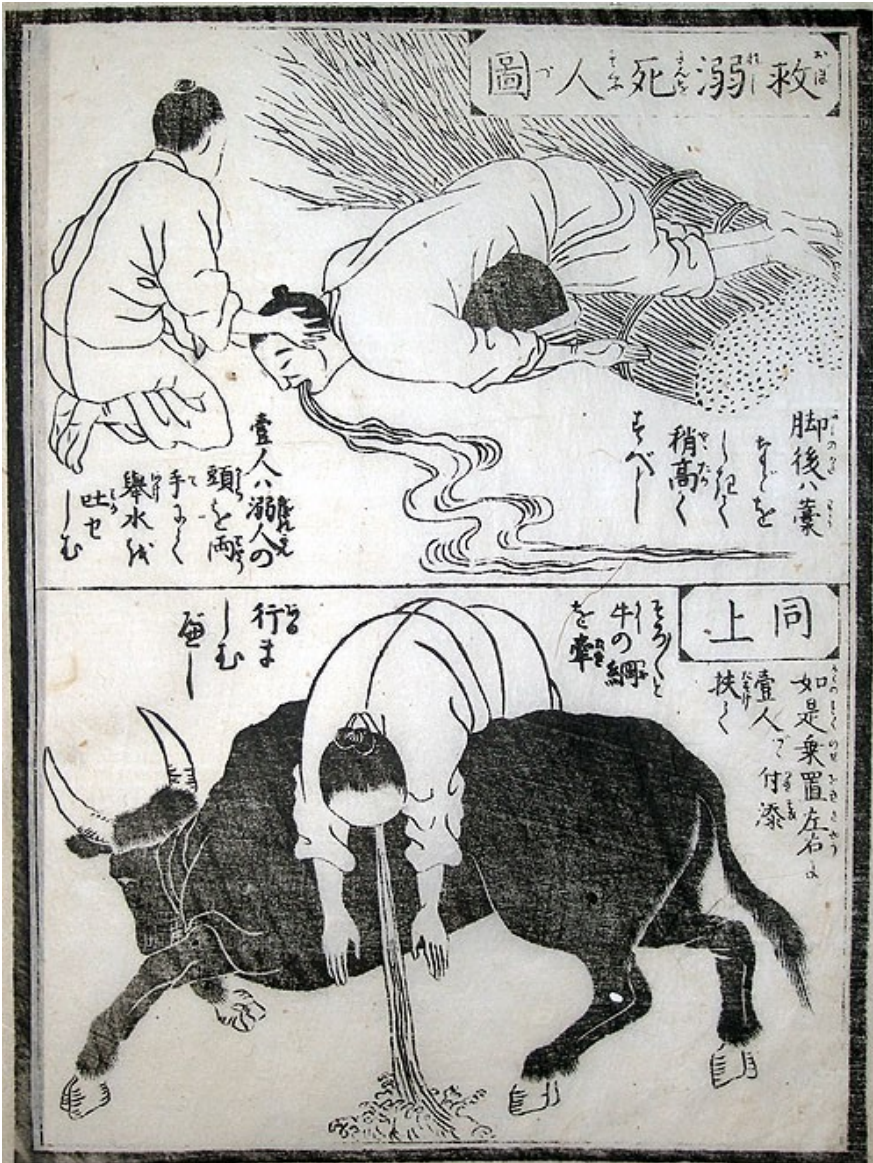 救溺死人圖
脚後ハ藁
などを
しきて
稍高く
すべし
壹人ハ溺人の
頭を両
手にて
擧水を
吐せ
しむ
同上
如是乗置左右に
壹人づゝ付添
扶く
そろ〳〵と
牛の綱
を牽
行ま
しむ
べし